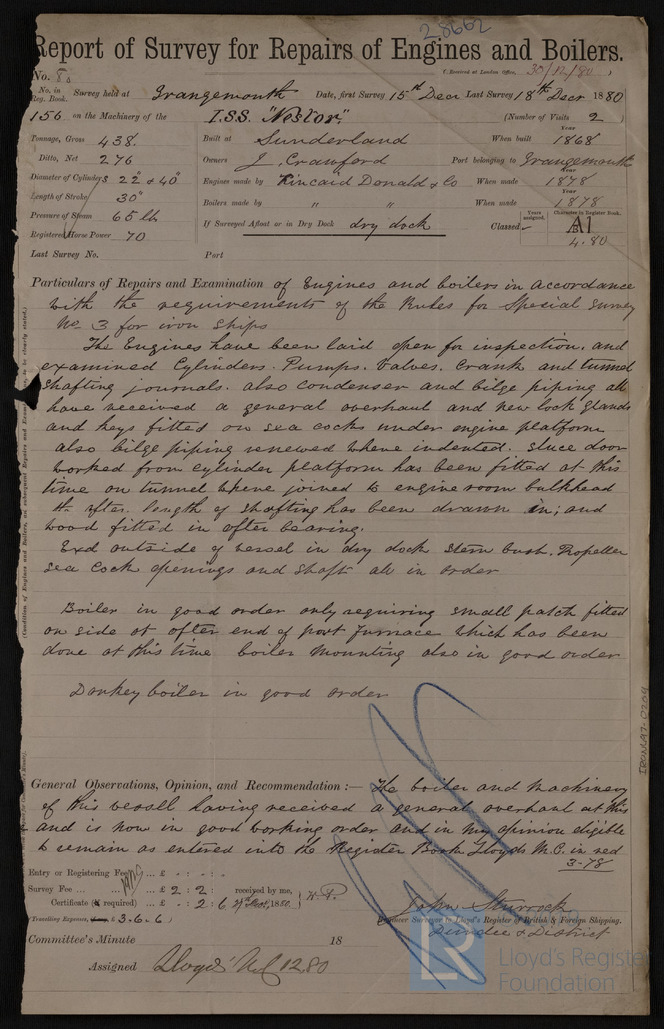 28662
Report of Survey for Repairs of Engines and Boilers.
(Received at London Office, 30/12/80)
No. 80
No. in Reg. Book. Survey held at Grangemouth Date, first Survey 15th Decr Last Survey 18th Decr 1880
156 on the Machinery of the I.S.S. "Nestor" (Number of Visits 2)
Tonnage, Gross 438
Ditto, Net 276
Diameter of Cylinders 22" & 40"
Length of Stroke 30"
Pressure of Steam 65 lb
Registered Horse Power 70
Last Survey No. Port
Built at Sunderland When built Year 1868
Owners J. Crawford Port belonging to Grangemouth
Engines made by Kincaid Donald & Co When made Year 1878
Boilers made by " " When made Year 1878
If Surveyed Afloat or in Dry Dock dry dock
Classed Years assigned. Character in Register Book. A1
4.80
Particulars of Repairs and Examination of Engines and boilers in accordance
with the requirements of the Rules for Special Survey
No 3 for iron ships
The Engines have been laid open for inspection. and
examined Cylinders. Pumps. valves. Crank and tunnel
shafting journals. also condenser and bilge piping all
have received a general overhaul and new lock glands
and keys fitted on sea cocks under engine platform
also bilge piping renewed where indented. Sluce door
worked from cylinder platform has been fitted at this
time on tunnel where joined to engine room bulkhead
the after length of shafting has been drawn in; and
wood fitted in after bearing.
Exd outside of vessel in dry dock stern bush. Propeller
sea cock openings and shaft all in order
Boiler in good order only requiring small patch fitted
on side at after end of port furnace which has been
done at this time boiler mounting also in good order
Donkey boiler in good order
General Observations, Opinion, and Recommendation :— The boiler and Machinery
of this vessell having received a general overhaul at this
and is now in good working order and in my opinion eligible
to remain as entered into the Register Book Lloyds M.C. in red
3-78
Entry or Registering Fee ... £ - : - : -
Survey Fee ... £ 2 : 2 : received by me,
Certificate (if required) ... - : 2 : 6 1880.
(Travelling Expenses, £ 3.6.6)
John Sturrock
Engineer Surveyor to Lloyd's Register of British & Foreign Shipping.
Dundee & District
Committee's Minute 18
Assigned Lloyds' M.C 12.80
(Condition of Engines and Boilers, on subsequent Repairs and Examination, to be clearly stated.)
LR
Lloyd's Register
Foundation